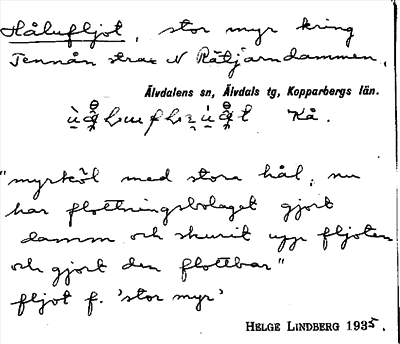 Hålufljot, stor myr kring
Tennån strax N Rätjärndammen.
Älvdalens sn, Älvdals tg, Kopparbergs län.
Kå.
"myrköl med stora hål, nu
har flottningsbolaget gjort
damm och skurit upp fljoten
och gjort den flottbar"
fljot f. 'stor myr'
HELGE LINDBERG 1935.